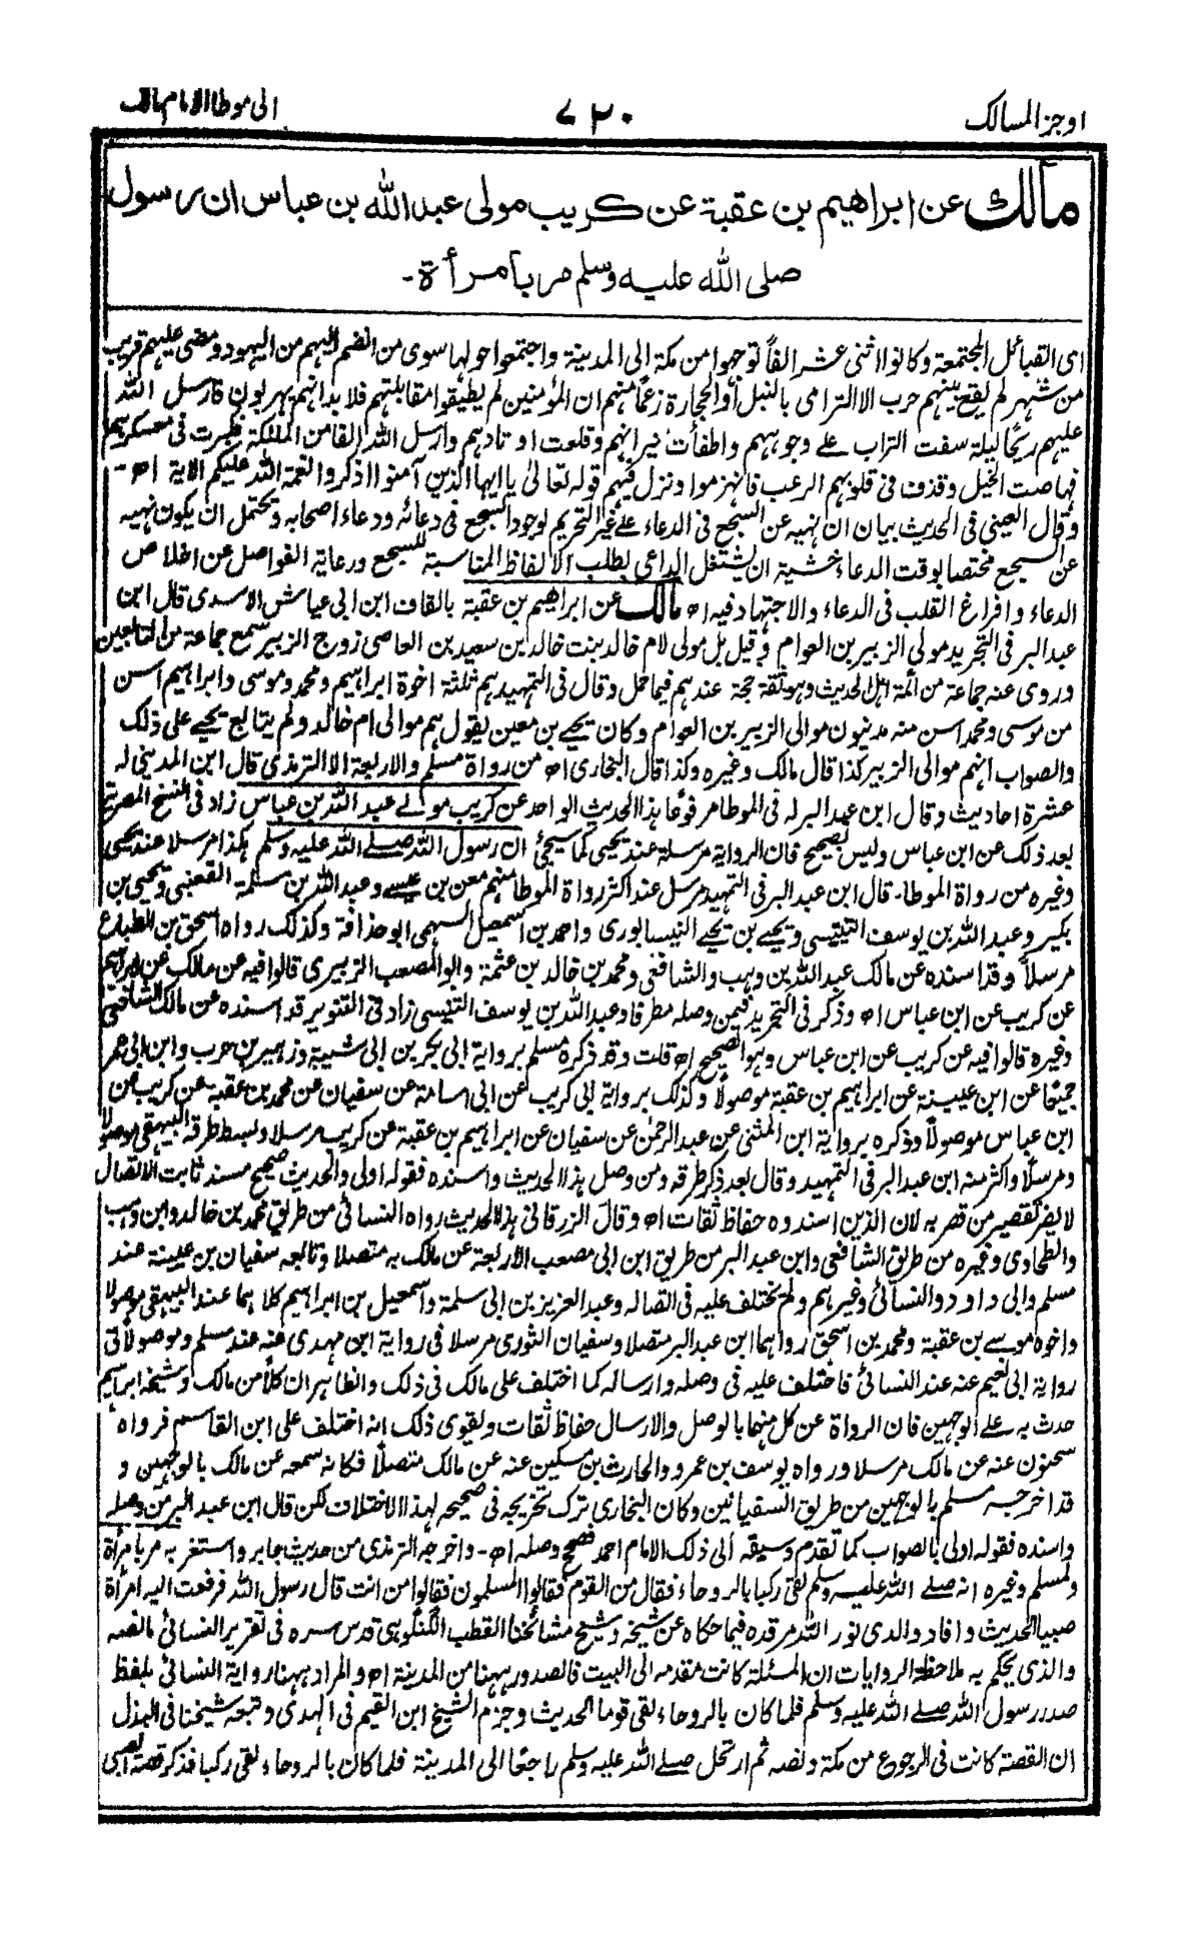 اوجز المسالك
٧٢٠
الى موطا الامام مالك
مالك عن ابراهيم بن عقبة عن كريب مولى عبد الله بن عباس ان رسول
صلى الله عليه وسلم مر بامرأة-
اى القبائل المجتمعة وكانوا اثنى عشر الفاً توجهوا من مكة الى المدينة واجتمعوا حولها سوى من انضم اليهم من اليهود ومضى عليهم قريب
من شهر لم يقع بينهم حرب الا الترامى بالنبل أو الحجارة زعماً منهم ان المؤمنين لم يطيقوا مقابلتهم فلا بد انهم يهربون فارسل الله
عليهم ريحا ليلة سفت التراب على وجوههم واطفأت نيرانهم وقلعت اوتادهم وارسل الله الفا من الملئكة فكبرت فى معسكرهم
فهاصت الخيل وقذف فى قلوبهم الرعب فانهزموا ونزل فيهم قوله تعالى يا ايها الذين آمنوا اذكروا نعمة الله عليكم الاية اه-
وقال العينى فى الحديث بيان ان نهيه عن السجع فى الدعاء على غير التحريم لوجود السجع فى دعائه ودعاء اصحابه ويحتمل ان يكون نهيه
عن السجع مختصا بوقت الدعاء خشية ان يشتغل الداعى بطلب الالفاظ المناسبة للسجع ورعاية الفواصل عن اخلاص
الدعاء وافراغ القلب فى الدعاء والاجتهاد فيه اه مالك عن ابراهيم بن عقبة بالقاف ابن ابى عياش الاسدى قال ابن
عبد البر فى التجريد مولى الزبير بن العوام وقيل بل مولى لام خالد بنت خالد بن سعيد بن العاصى زوج الزبير سمع جماعة من التابعين
وروى عنه جماعة من ائمة اهل الحديث وهو ثقة حجة عندهم فيما حمل وقال فى التمهيد هم ثلثة اخوة ابراهيم ومحمد وموسى وابراهيم اسن
من موسى ومحمد اسن منه مدنيون موالى الزبير بن العوام وكان يحيى بن معين يقول هم موالى ام خالد ولم يتابع يحيى على ذلك
والصواب انهم موالى الزبير كذا قال مالك وغيره وكذا قال البخارى اه من رواة مسلم والاربعة الا الترمذى قال ابن المدينى له
عشرة احاديث وقال ابن عبد البر له فى الموطا مرفوعا هذا الحديث الواحد عن كريب مولى عبد الله بن عباس زاد فى النسخ المصرية
بعد ذلك عن ابن عباس وليس بصحيح فان الرواية مرسلة عند يحيى كما سيجئ ان رسول الله صلى الله عليه وسلم هكذا مرسلا عند يحيى
وغيره من رواة الموطا- قال ابن عبد البر فى التمهيد مرسل عند اكثر رواة الموطا منهم معن بن عيسى وعبد الله بن مسلمة القعنبى ويحيى بن
بكير وعبد الله بن يوسف التنيسى ويحيى بن يحيى النيسابورى واحمد بن اسمعيل السهمى ابو حذافة وكذلك رواه اسحق بن الطباع
مرسلاً وقد اسنده عن مالك عبد الله بن وهب والشافعى ومحمد بن خالد بن عثمة وابو المصعب الزبيرى قالوا فيه عن مالك عن ابراهيم
عن كريب عن ابن عباس اه وذكر فى التجريد فيمن وصله مطرفا وعبد الله بن يوسف التنيسى زاد فى التنوير قد اسنده عن مالك الشافعى
وغيره قالوا فيه عن كريب عن ابن عباس وهو الصحيح اه قلت وقد ذكره مسلم برواية ابى بكر بن ابى شيبة وزهير بن حرب وابن ابى عمر
جميعًا عن ابن عيينة عن ابراهيم بن عقبة موصولاً وكذلك برواية ابى كريب عن ابى اسامة عن سفيان عن محمد بن عقبة عن كريب عن
ابن عباس موصولاً وذكره برواية ابن المثنى عن عبد الرحمٰن عن سفيان عن ابراهيم بن عقبة عن كريب مرسلا وبسط طرقه البيهقى موصولا
ومرسلًا واكثر منه ابن عبد البر فى التمهيد وقال بعد ذكر طرقه ومن وصل هذا الحديث واسنده فقوله اولى والحديث صحيح مسند ثابت الاتصال
لا يضر تقصير من قصر به لان الذين اسندوه حفاظ ثقات اه وقال الزرقانى هذا الحديث رواه النسائى من طريق محمد بن خالد وابن وهب
والطحاوى وغيره من طريق الشافعى وابن عبد البر من طريق ابن ابى مصعب الاربعة عن مالك به متصلا وتابعه سفيان بن عيينة عند
مسلم وابى داود والنسائى وغيرهم ولم يختلف عليه فى اتصاله وعبد العزيز بن ابى سلمة واسمعيل بن ابراهيم كلاهما عند البيهقى موصولا
واخوه موسى بن عقبة ومحمد بن اسحق رواهما ابن عبد البر متصلا وسفيان الثورى مرسلا فى رواية ابن مهدى عنه عند مسلم وموصولا فى
رواية ابى نعيم عنه عند النسائى فاختلف عليه فى وصله وارساله كما اختلف على مالك فى ذلك والظاهر ان كلاً من مالك وشيخه ابراهيم
حدث به على الوجهين فان الرواة عن كل منهما بالوصل والارسال حفاظ ثقات ويقوى ذلك انه اختلف على ابن القاسم فرواه
سحنون عنه عن مالك مرسلا ورواه يوسف بن عمرو والحارث بن مسكين عنه عن مالك متصلاً فكانه سمعه عن مالك بالوجهين و
قد اخرجه مسلم بالوجهين من طريق السفيانين وكان البخارى ترك تخريجه فى صحيحه لهذا الاختلاف لكن قال ابن عبد البر من وصله
واسنده فقوله اولى بالصواب كما تقدم وسبقه الى ذلك الامام احمد فصحح وصله اه- واخرجه الترمذى من حديث جابر واستغربه مر بامرأة
ولمسلم وغيره انه صلى الله عليه وسلم لقى ركبا بالروحاء فقال من القوم فقالوا المسلمون فقالوا من انت قال رسول الله فرفعت اليه امرأة
صبيا الحديث وافاد والدى نور الله مرقده فيما حكاه عن شيخه وشيخ مشائخنا القطب الگنگوهى قدس سره فى تقرير النسائى مانصه
والذى يحكم به ملاحظة الروايات ان المسئلة كانت مقدمه الى البيت فالصدور ههنا من المدينة اه والمراد ههنا رواية النسائى بلفظ
صدر رسول الله صلى الله عليه وسلم فلما كان بالروحاء لقى قوما الحديث وجزم الشيخ ابن القيم فى الهدى وتبعه شيخنا فى البذل
ان القصة كانت فى الرجوع من مكة ونصه ثم ارتحل صلى الله عليه وسلم راجعًا الى المدينة فلما كان بالروحاء لقى ركبا فذكر قصة